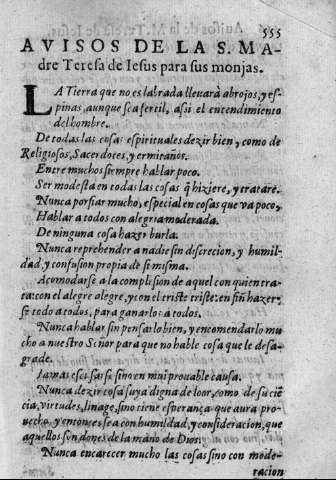 555
AVISOS DE LA S. MA-
dre Teresa de Iesus para sus monjas.
LA Tierra que no es labrada lleuarà abrojos, y es-
pinas, aunque sea fertil, assi el entendimiento
del hombre.
De todas las cosas espirituales dezir bien, y como de
Religiosos, Sacerdotes, y ermitaños.
Entre muchos siempre hablar poco.
Ser modesta en todas las cosas q̃ hiziere, y tratare.
Nunca porfiar mucho, especial en cosas que va poco,
Hablar a todos con alegria moderada.
De ninguna cosa hazer burla.
Nunca reprehender a nadie sin discrecion, y humil-
dad, y confusion propia de si misma.
Acomodarse a la complision de aquel con quien tra-
ta: con el alegre alegre, y con el triste triste: en fin hazer-
se todo a todos, para ganarlos a todos.
Nunca hablar sin pensarlo bien, y encomendarlo mu-
cho a nuestro Señor para que no hable cosa que le desa-
grade.
Iamas escusarse sino en mui prouable causa.
Nunca dezir cosa suya digna de loor, como de sciẽ
cia, virtudes, linage, sino tiene esperança que aura pro-
uecho, y entonces sea con humildad, y consideracion, que
aquellos son dones de la mano de Dios.
Nunca encarecer mucho las cosas sino con mode-
racion